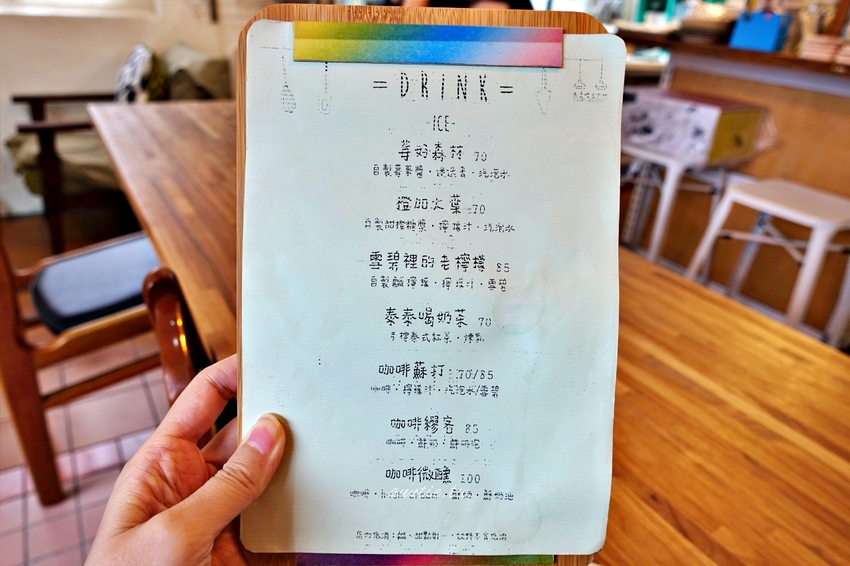 = DRINK =
-ICE-
莓好森林 70
自製莓果醬・迷迭香・汽泡水
橙加火葉 70
自製甜橙糖漿・檸檬汁・汽泡水
雪碧裡的老檸檬 85
自製鹹檸檬・檸檬汁・雪碧
泰泰喝奶茶 70
手標泰式紅茶・煉乳
咖啡蘇打 70/85
咖啡・檸檬汁・汽泡水/雪碧
咖啡繆客 85
咖啡・鮮奶・鮮奶泡
咖啡微醺 100
咖啡・鮮奶・鮮奶泡